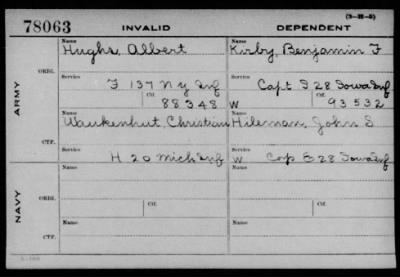 (3-111-5)
78063 INVALID DEPENDENT
Name Name
Hughs, Albert Kirby, Benjamin F
ORIG.
Service Service
F 137 N Y Inf Capt I 28 Iowa Inf
Ctf. Ctf.
88348 W 93532
ARMY
Name Name
Waukenhut Christian Hileman, John S
CTF.
Service Service
H 20 Mich Inf W Corp E 28 Iowa Inf
Name Name
ORIG.
Service Service
Ctf. Ctf.
NAVY
Name Name
CTF.